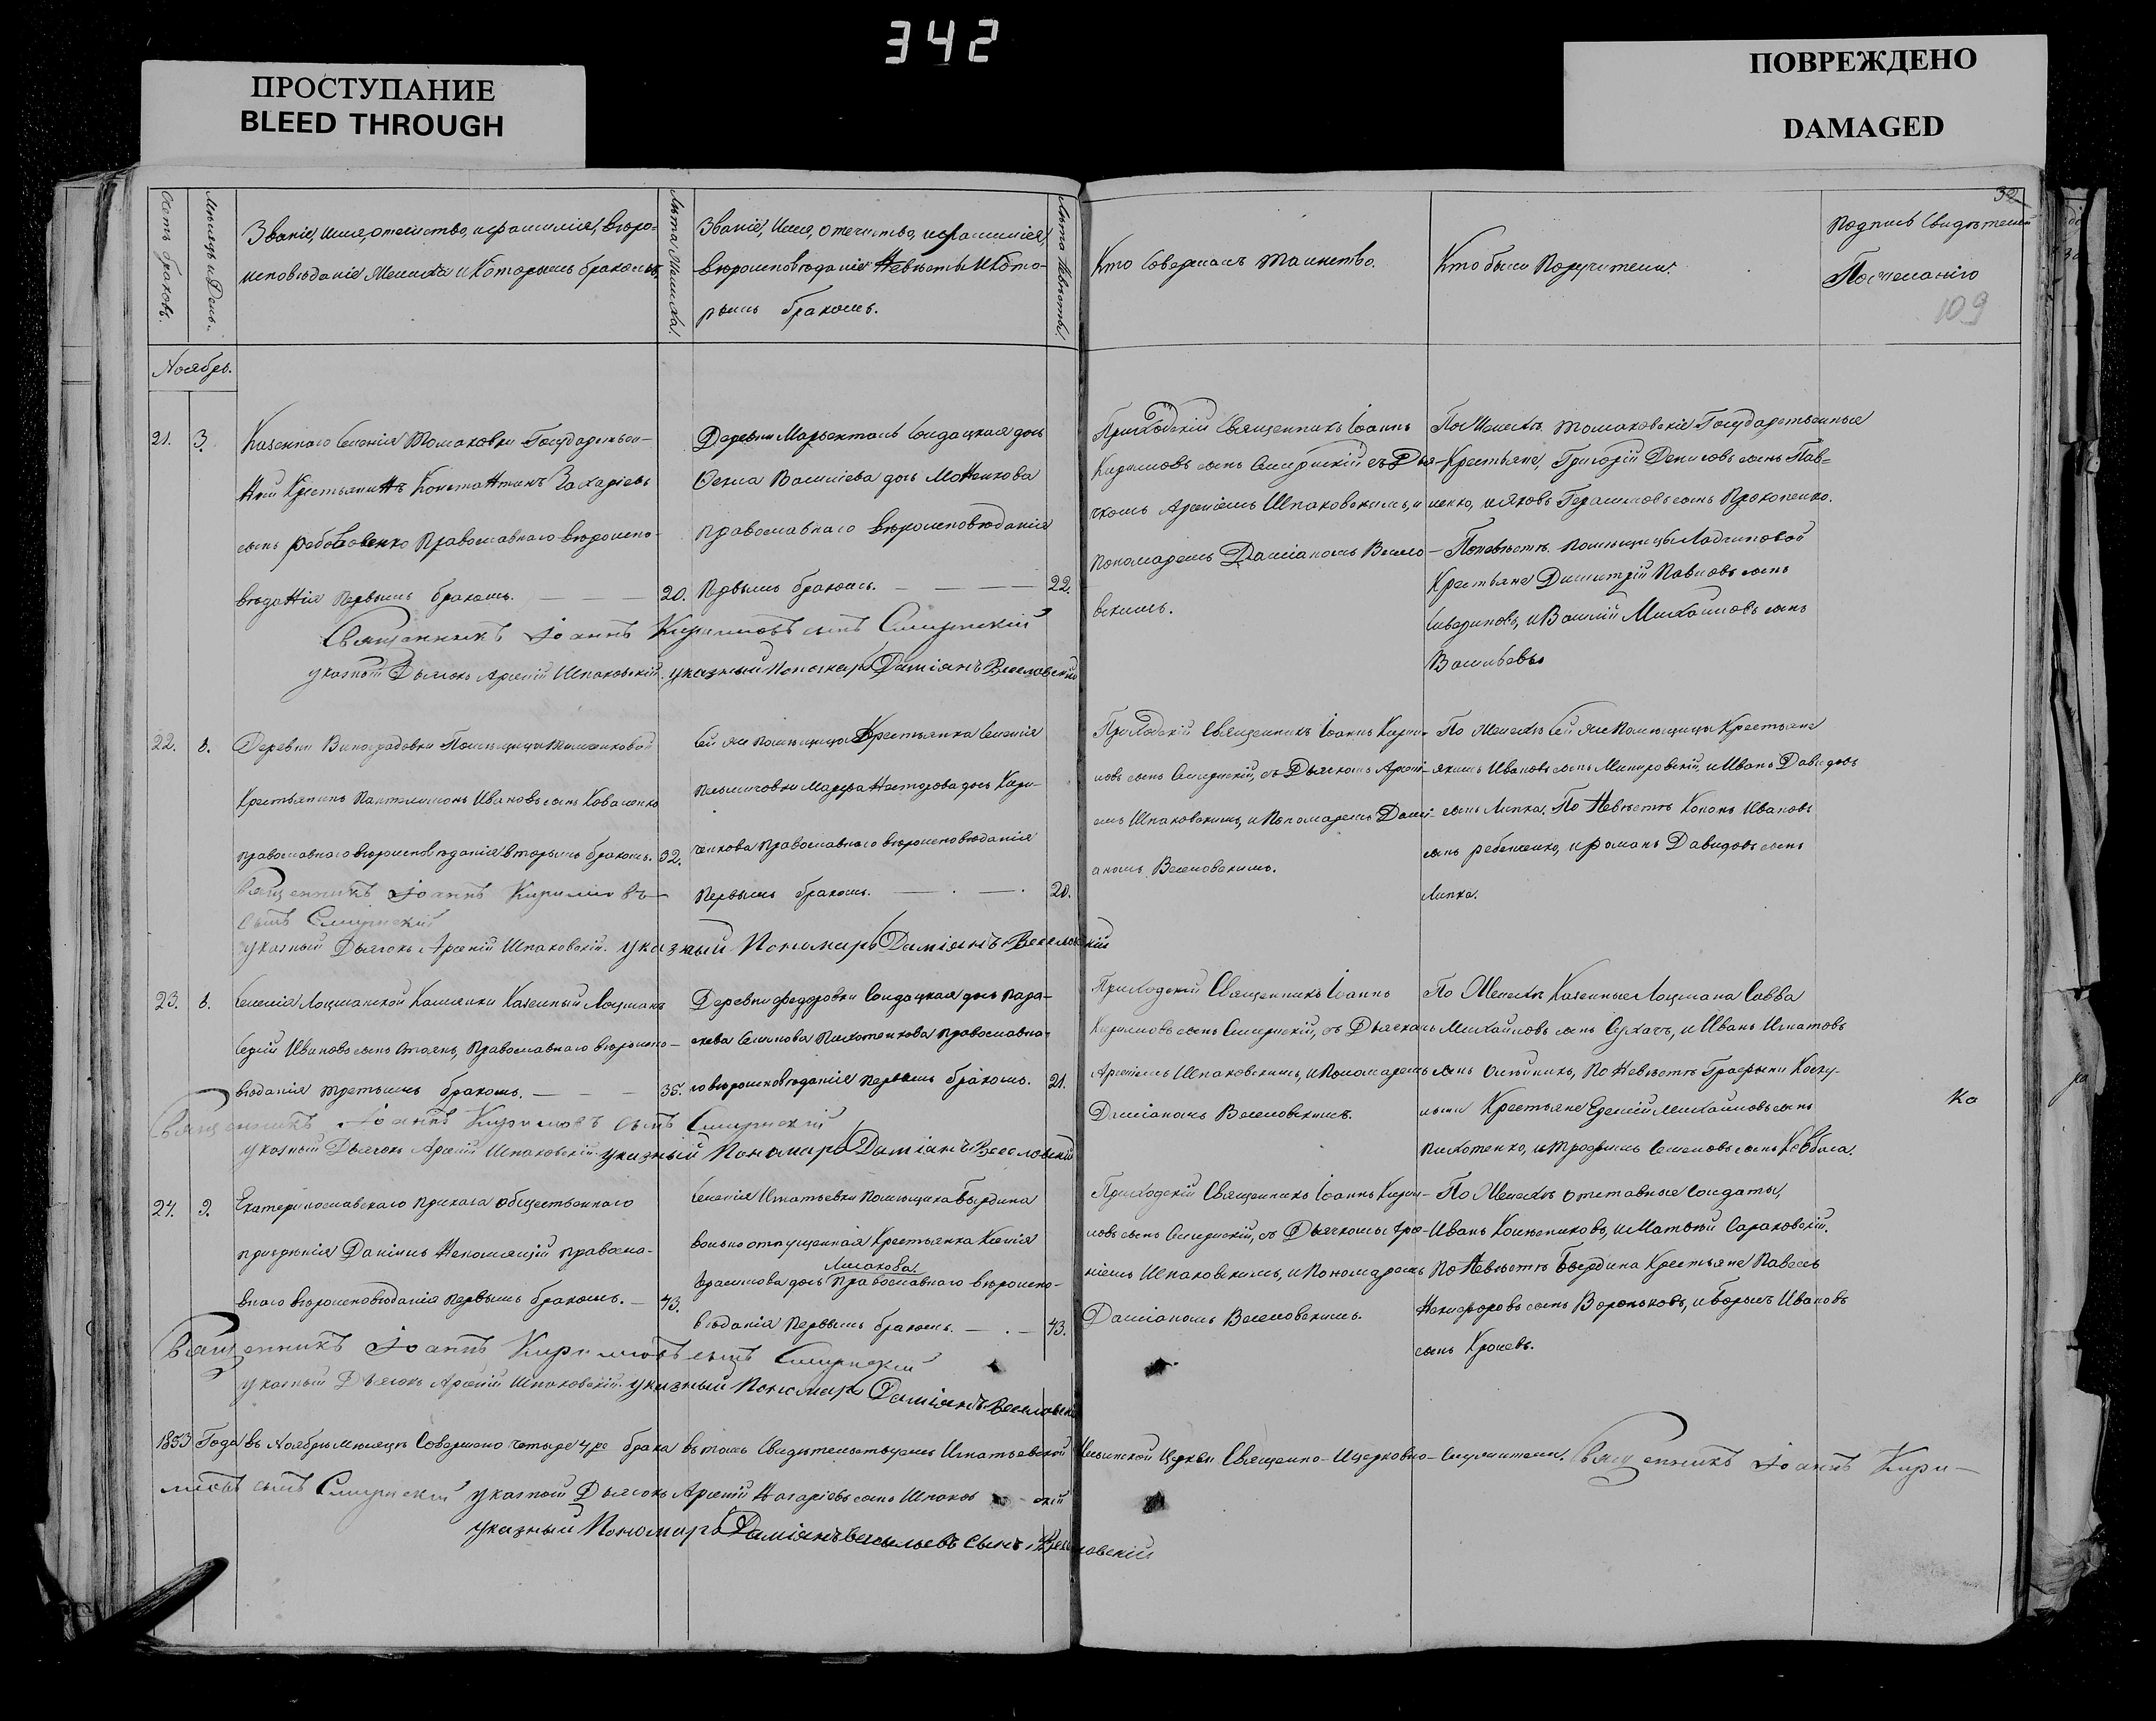 342
ПРОСТУПАНИЕ
BLEED THROUGH
ПОВРЕЖДЕНО
DAMAGED
32
109
Счетъ браковъ.
Мѣсяцъ и День.
Званіе, имя, отечество, и фамилія, вѣро-
исповѣданіе Жениха и Которымъ бракомъ.
Лѣта Жениха
Званіе, Имя, отечество, и фамилія,
вѣроисповѣданіе Невѣсты И Кото-
рымъ бракомъ.
Лѣта Невѣсты
Кто совершалъ таинство.
Кто были Поручители.
Подпись Свидѣтелей
По желанію
Ноябрь.
21. 3.
Казеннаго Селенія Томаковки Государствен-
ный Крестьянинъ Константинъ Захаріевъ
сынъ Православнаго вѣроиспо-
вѣданія первымъ бракомъ. 20.
Деревни солдацкая дочь
Василіева дочь
православнаго вѣроисповѣданія
Первымъ бракомъ. 22.
Приходскій Священникъ Іоаннъ
Кириловъ сынъ Смирнскій съ Дья-
чкомъ Арсеніемъ Шпаковскимъ, и
пономаремъ Даміаномъ Весело-
вскимъ.
По Женихѣ Томаковскіе Государственные
Крестьяне, Григорій Денисовъ сынъ Пав-
ленко, и Яковъ Герасимовъ сынъ Прокопенко.
По невѣстѣ помѣщицы
Крестьяне Димитрій Павловъ сынъ
и Василій Михайловъ сынъ
Васильевъ
Священникъ Іоаннъ Кириловъ сынъ Смирнскій
указный Дьячокъ Арсеній Шпаковскій. указный Пономарь Даміанъ Веселовскій
22. 8.
Деревни Виноградовки Помѣщицы
Крестьянинъ Пантелимонъ Ивановъ сынъ Коваленко
православнаго вѣроисповѣданія вторымъ бракомъ. 32.
Сей же помѣщицы Крестьянка Селенія
Марфа Несторова дочь Кири-
ченкова Православнаго вѣроисповѣданія
Первымъ бракомъ. 20.
Приходскій Священникъ Іоаннъ Кири-
ловъ сынъ Смирнскій, съ Дьячкомъ Арсені-
емъ Шпаковскимъ, и Пономаремъ Дамі-
аномъ Веселовскимъ.
По Женихѣ Сей же Помѣщицы Крестьяне
Якимъ Ивановъ сынъ и Иванъ Давидовъ
сынъ Липка. По Невѣстѣ Кононъ Ивановъ
сынъ и романъ Давидовъ сынъ
Липка.
Священникъ Іоаннъ Кириловъ
сынъ Смирнскій
указный Дьячокъ Арсеній Шпаковскій. указный Пономарь Даміанъ Веселовскій
23. 8.
Селенія Лоцманской Каменки Казенный Лоцманъ
Сергій Ивановъ сынъ Православнаго вѣроиспо-
вѣданія третьимъ бракомъ. 35.
Деревни федоровки Солдацкая дочь Пара-
скева Семенова Пихотенкова православна-
го вѣроисповѣданія первымъ бракомъ. 21.
Приходскій Священникъ Іоаннъ
Кириловъ сынъ Смирнскій, съ Дьячкомъ
Арсеніемъ Шпаковскимъ, и Пономаремъ
Даміаномъ Веселовскимъ.
По Женихѣ Казенные Лоцмана Савва
Михайловъ сынъ Сухачъ, и Иванъ Игнатовъ
сынъ По Невѣстѣ Графини
Крестьяне Михайловъ сынъ
Пихотенко, и трофимъ Семеновъ сынъ
Ко
Священникъ Іоаннъ Кириловъ сынъ Смирнскій
указный Дьячокъ Арсеній Шпаковскій указный Пономарь Даміанъ Веселовскій
24. 9.
Екатеринославскаго приказа общественнаго
призрѣнія Даніилъ Непомнящій правосла-
внаго вѣроисповѣданія первымъ бракомъ. 43.
Селенія Игнатьевки Помѣщика Бердина
вольно отпущенная Крестьянка Ксенія
Лисакова.
Герасимова дочь Православнаго вѣроиспо-
вѣданія Первымъ бракомъ. 43.
Приходскій Священникъ Іоаннъ Кири-
ловъ сынъ Смирнскій, съ Дьячкомъ Арсе-
ніемъ Шпаковскимъ, и Пономаремъ
Даміаномъ Веселовскимъ.
По Женихѣ отставные солдаты,
Иванъ и Матвѣй Сараковскій.
По Невѣстѣ Бердина Крестьяне Павелъ
Никифоровъ сынъ Вороньковъ, и Борисъ Ивановъ
сынъ
Священникъ Іоаннъ Кириловъ сынъ Смирнскій
указный Дьячокъ Арсеній Шпаковскій. указный Пономарь Даміанъ Веселовскій
1853 Года въ Ноябрѣ мѣсяцѣ Совершено четыре 4ре брака въ томъ Свидѣтельствуемъ Игнатьевской Церкви Священно-Ицерковно-Служители. Священникъ Іоаннъ Кири-
ловъ сынъ Смирнскій указный Дьячокъ Арсеній сынъ Шпаковскій
указный Пономарь Даміанъ Васильевъ сынъ Веселовскій